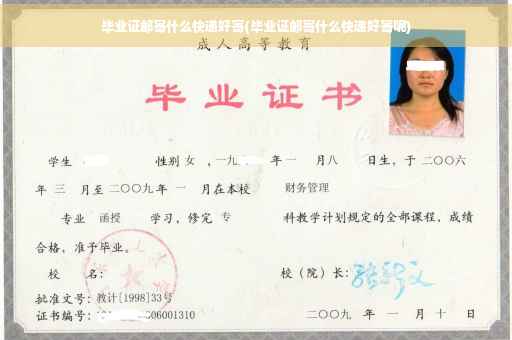 毕业证邮寄什么快递好寄(毕业证邮寄什么快递好寄呢)
成人高等教育
毕业证书
学生 性别 女 ，一九 年一 月八 日生，于二〇〇六
年 三 月至二〇〇九年 一 月在本校 财务管理
专业 函授 学习，修完 专 科教学计划规定的全部课程，成绩
合格，准予毕业。
校 名： 校（院）长：
批准文号：教计[1998]33号
证书编号： 06001310 二〇〇九 年 一 月 十 日